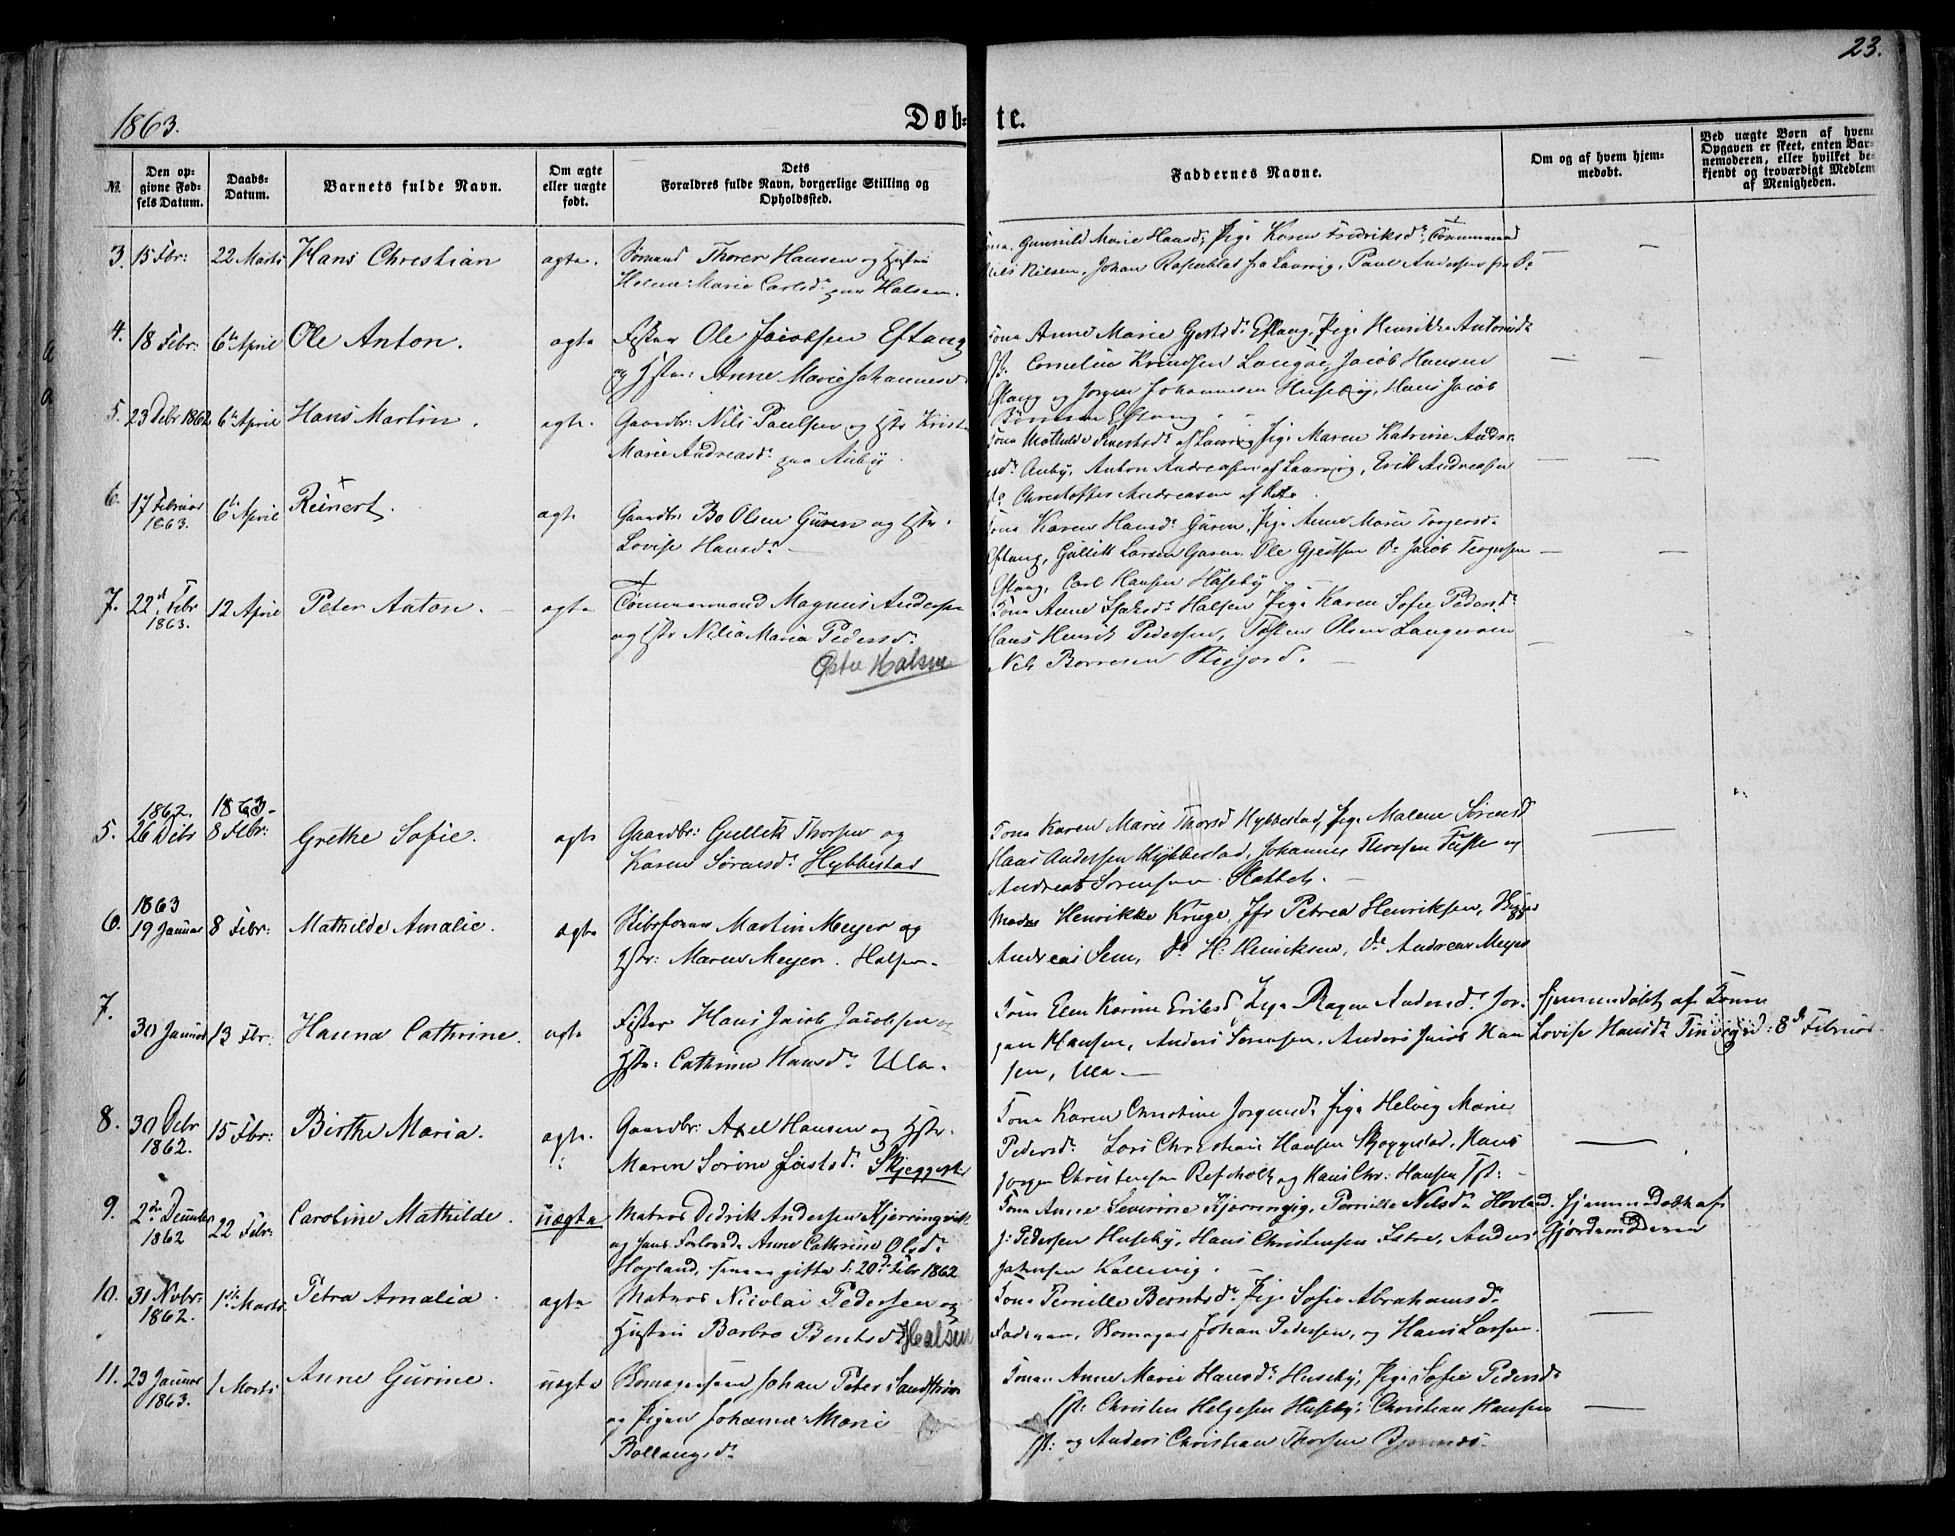 23.
1863. Døb- te.
№. Den op- givne Fød- sels Datum. Daabs- Datum. Barnets fulde Navn. Om ægte eller uægte født. Dets Forældres fulde Navn, borgerlige Stilling og Opholdssted. Faddernes Navne. Om og af hvem hjem- medøbt. Ved uægte Børn af hvem Opgaven er skeet, enten Bar- nemoderen, eller hvilket be- kjendt og troværdigt Medlem af Menigheden.
3. 15 Fbr: 22 Marts Hans Christian ægte. Sømand Thorer Hansen og Hustru
Helene Marie Carlsdr. paa Halsen.
Gunnild Marie Hansd; Pige Karen Fredriksdr, Tømmermand
Nils Nilsen, Johan Rosenblad fra Laurvig, Paul Andersen fra Do
4. 18 Febr: 6te April Ole Anton. ægte Fisker Ole Jacobsen Eftang
og Hstr: Anne Marie Johannesd
Kona Anne Marie Gjertsdr Eftang, Pige Henrikke Antonisdr
Cornelius Knudsen Langøe, Jacob Hansen
Eftang og Jørgen Johannesen Huseby, Hans Jacob
Eftang
5. 23 Debr 1862 6te April Hans Martin. ægte. Gaardbr: Nils Paulsen og Hstr Krist
Marie Andreasdr. paa Auby.
Kona Mathilde af Laurvig, Pige Maren Katrine Andre-
sdr Auby, Anton Andreasen af Laurvig, Erik Andreasen
do Christoffer Andreasen af
6. 17 Februar 1863. 6te April Reinert. ægte Gaardbr: Bo Olsen Guren og Hstr.
Lovise Hansdr.
Kona Karen Hansdr Guren, Pige Anne Marie Torgersdr
Eftang, Gullik Larsen Guren. Ole Gjertsen Do Jacob Torgersen
Eftang, Carl Hansen Huseby
7. 22d Febr 1863. 12 April Peter Anton. ægte Tømmermand Magnus Anderse
og Hstr Nilia Maria Pedersdr.
Østre Halsen
Kona Anne Halsen Pige Karen Sofie Pedersdr
Hans Henrik Pedersen, Torsten Olsen Langesøen
Nils Borresen
5. 1862. 26 Debr 1863 8 Febr: Grethe Sofie. ægte Gaardbr: Gullik Thorsen og
Karen Sørensdr. Hybbestad
Kona Karen Marie Thorsd Hybbestad, Pige Malene Sørensd
Hans Andersen Hybbestad, Johannes Thorsen og
Andreas Sørensen
6. 1863 19 Januar 8 Febr: Mathilde Amalie. ægte Skibsfører Martin Meyer og
Hstr: Maren Meyer. Halsen.
Madme Henrikke Kruge, Jfr Petrea Henriksen,
Andreas Sem, Do H: Henriksen, Do Andreas Meyer
7. 30 Januar 13 Fbr. Hanna Cathrine. ægte Fisker Hans Jacob Jacobsen og
Hstr: Cathrine Hansdr. Ula.
Kona Elen Karine Eriksd, Pige Ragne Andersdr. Jør-
gen Hansen, Anders Sørensen, Anders Jacob Han-
sen, Ula.
hjemmedøbt af Konen
Lovise Hansdr Tinvigd: 8d Februar
8. 30 Debr 1862. 15 Fbr: Birthe Maria. ægte. Gaardbr: Axel Hansen og Hstr.
Maren Sorine Justsdr. Skjeggest
Kona Karen Christine Jørgensdr Pige Helvig Marie
Pedersdr. Lars Christian Hansen Skjeggestad, Hans
Jørgen Christensen Refsholt og Hans Chr: Hansen
9. 2den December 1862 22 Febr: Caroline Mathilde. uægte Matros Didrik Andersen Kjerringvik
og hans Forlovede Anne Cathrine Olsdr.
Hovland, senere gifte d: 20d Febr 1862
Kona Anne Severine Kjerringvig, Pernille Nilsdr Hovland.
J: Pedersen Huseby, Hans Christensen Istre, Anders
Jakobsen Kallevig.
hjemmedøbt af
Gjordemoderen
10. 31 Nvbr. 1862. 1ste Marts Petra Amalia. ægte Matros Nicolai Pedersen og
Hustru Barbro Berntsdr Halsen
Kona Pernille Berntsdr. Pige Sofie Abrahamsdr
Faderen, Skomager Johan Pedersen, og Hans Larsen.
11. 23 Januar 1863. 1 Marts Anne Gurine. uægte Skomagersven Johan Peter Sandstrøm
og Pigen Johanne Marie
Bollaugsdr.
Kona Anne Marie Hansdr Huseby, Pige Sofie Pedersdr
Christen Helgesen Huseby, Christian Hansen
og Anders Christian Thorsen Bjønnes.